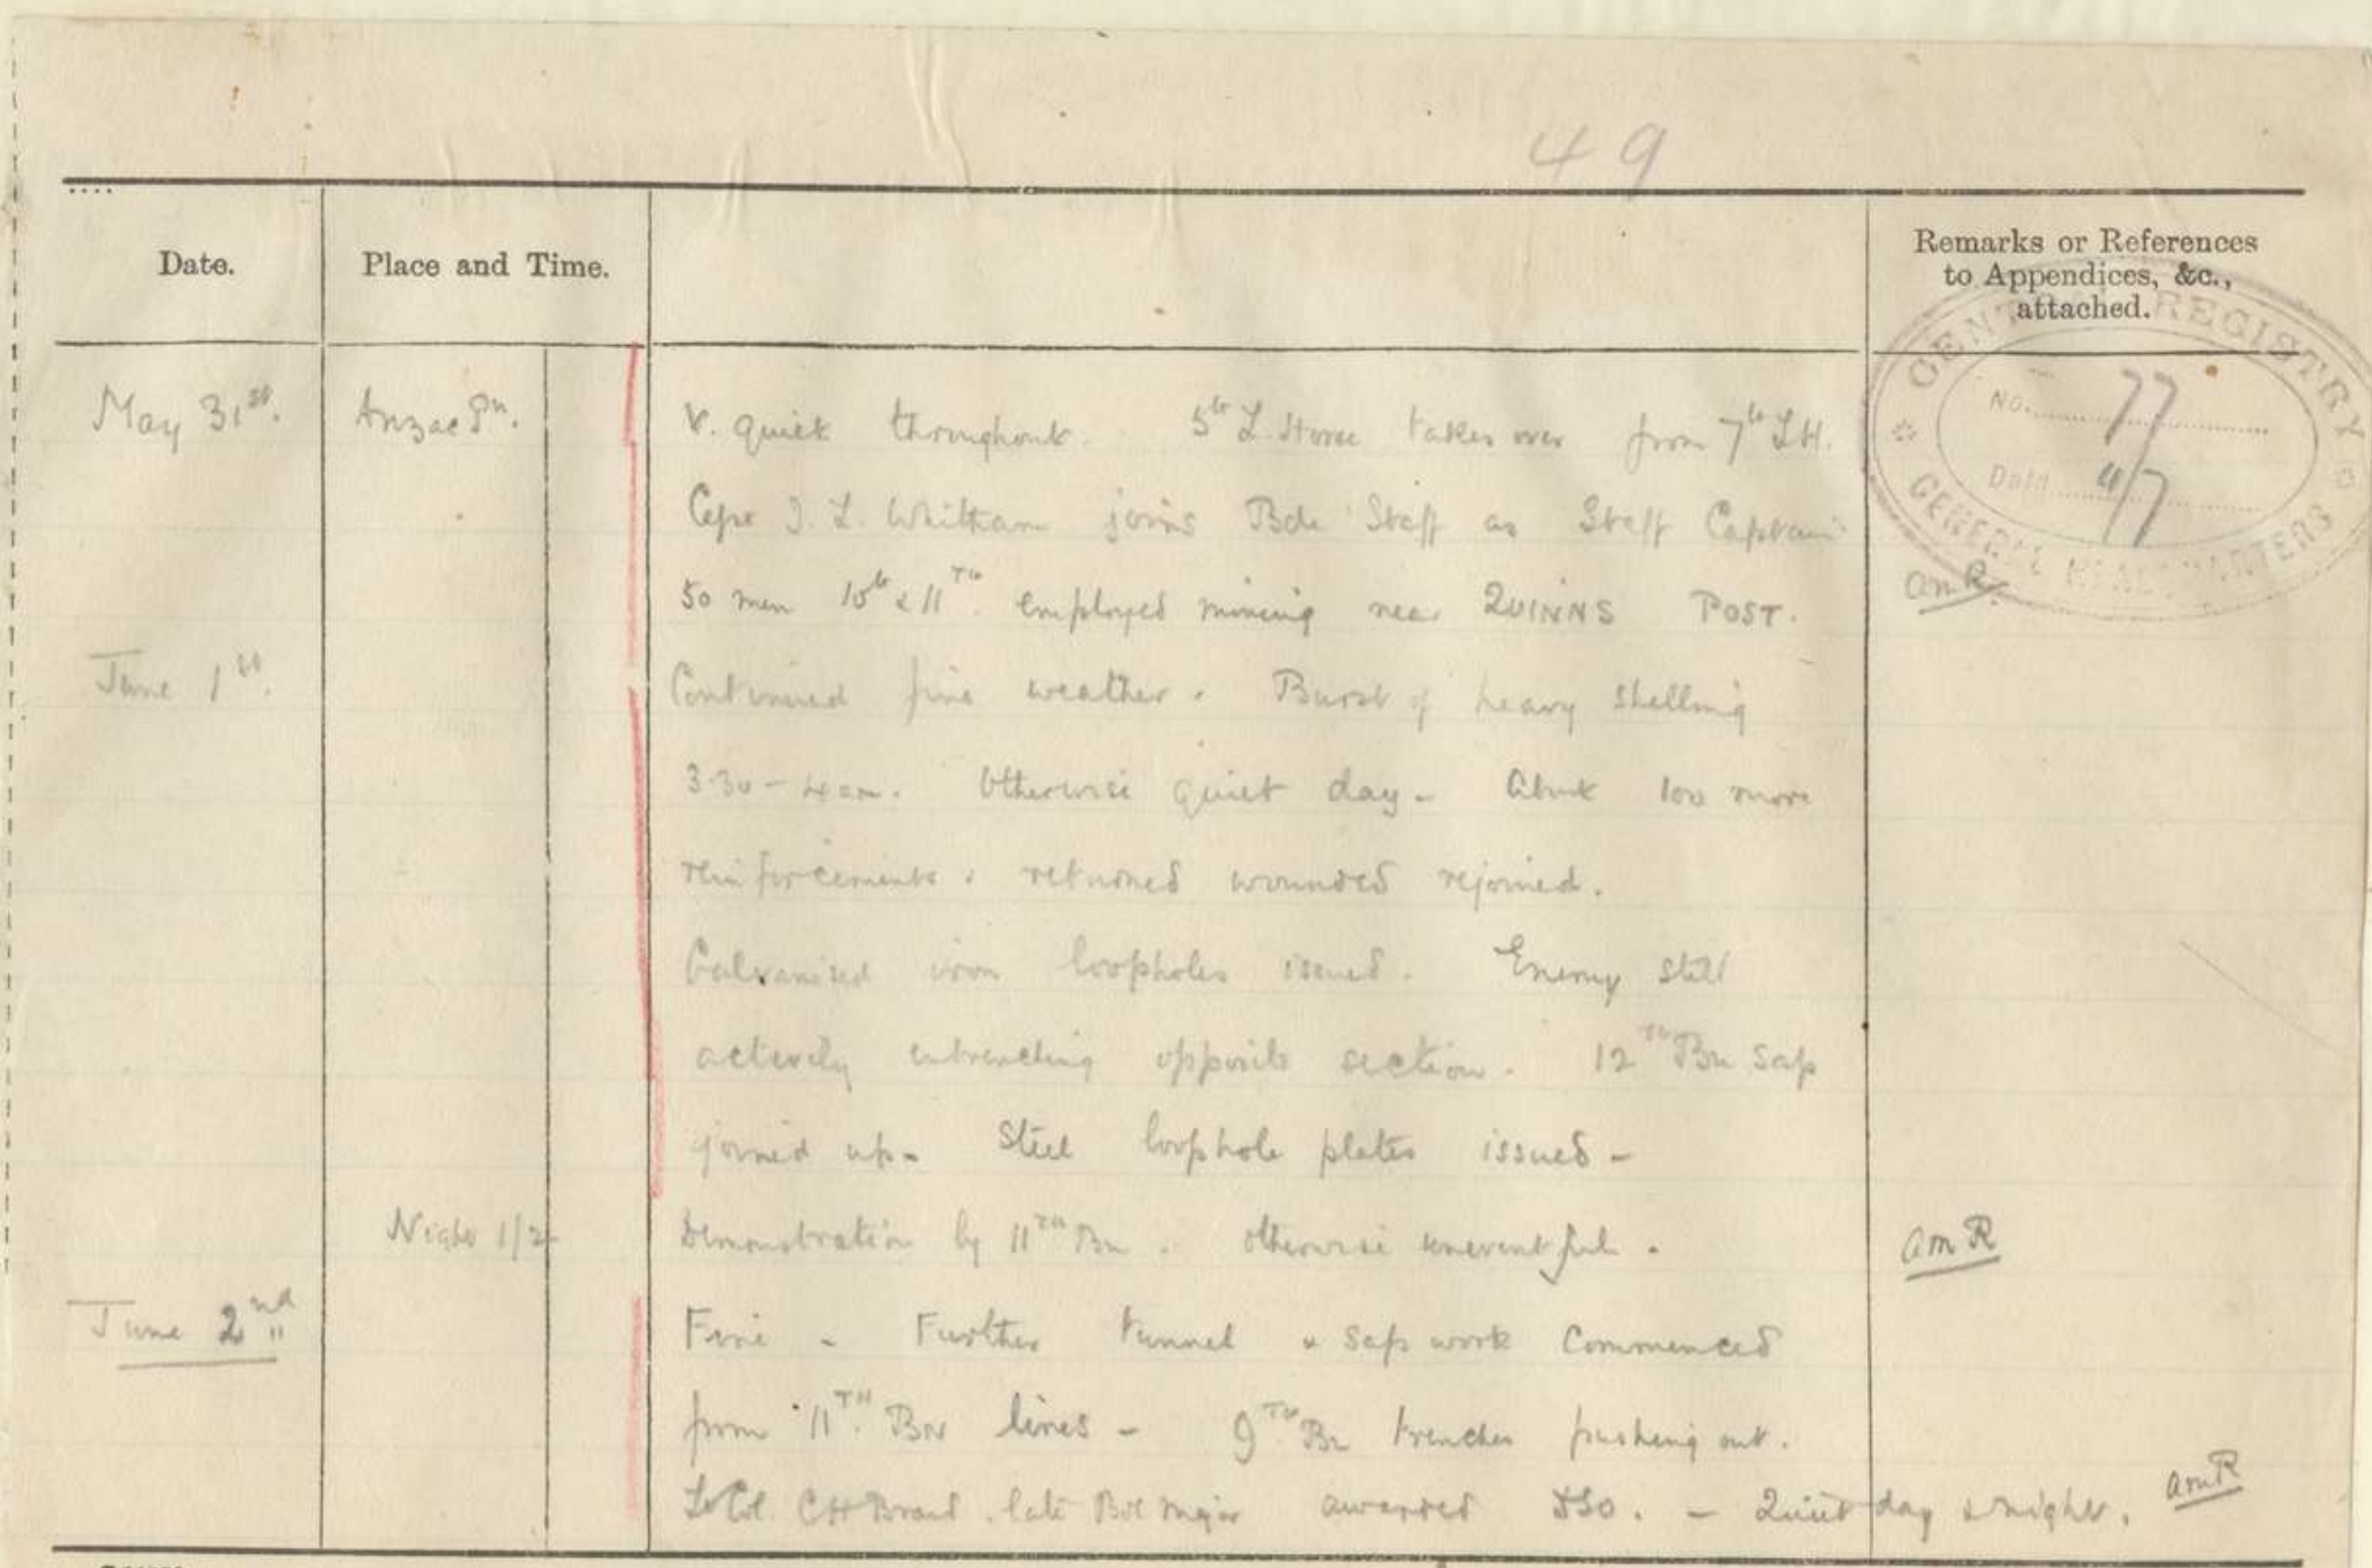 49
Date. Place and Time. Remarks or References
to Appendices, &c.,
attached.
CENTRAL REGISTRY
No. 77
Date 4/7
GENERAL HEADQUARTERS
May 31st. Anzac Pn. V. quiet throughout. 5th L. Horse takes over from 7th LH.
Capt J. L. Whitham joins Bde Staff as Staff Captain
50 men 10th & 11TH employed mining near QUINNS POST. amR
June 1st. Continued fine weather. Burst of heavy shelling
3.30 - 4 am. Otherwise quiet day - About 100 more
reinforcements & returned wounded rejoined.
Galvanised iron loopholes issued. Enemy still
actively entrenching opposite section. 12TH Bn Sap
joined up - Steel loophole plates issued -
Night 1/2 Demonstration by 11TH Bn. Otherwise uneventful. amR
June 2nd Fine - Further tunnel & sap work commenced
from 11TH Bn lines - 9TH Bn trenches pushing out.
Lt Col. CH Brand. late Bde Major awarded DSO. - Quiet day & night. amR